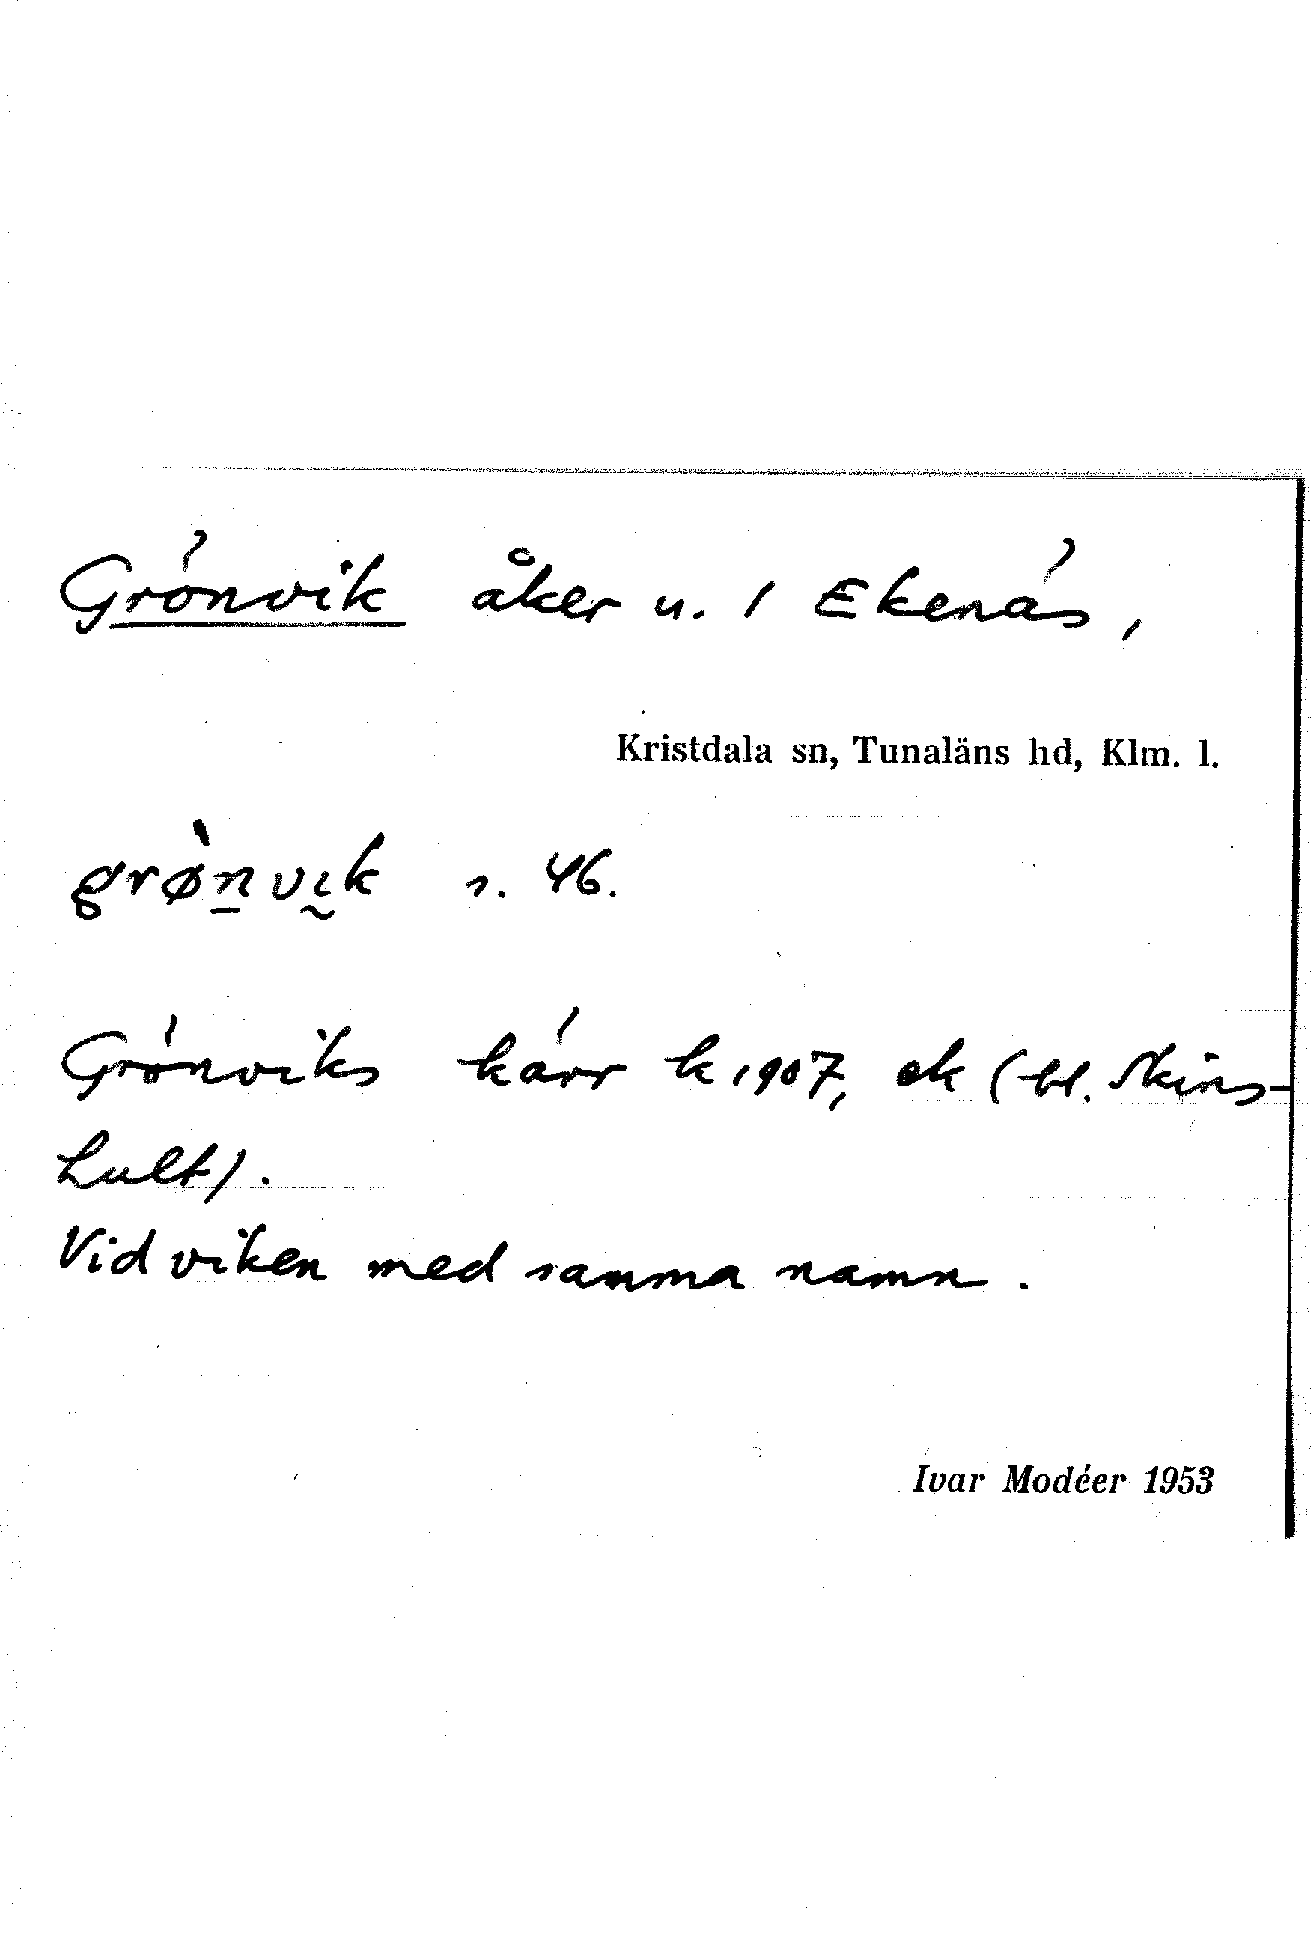 Grönvik åker u. 1 Ekenäs,
Kristdala sn, Tunaläns hd, Klm. l.
grø̀n̲vı̰k s. 46.
Grönviks kärr k 1907, ek (bl. Skins-
hult).
Vid viken med samma namn.
Ivar Modéer 1953